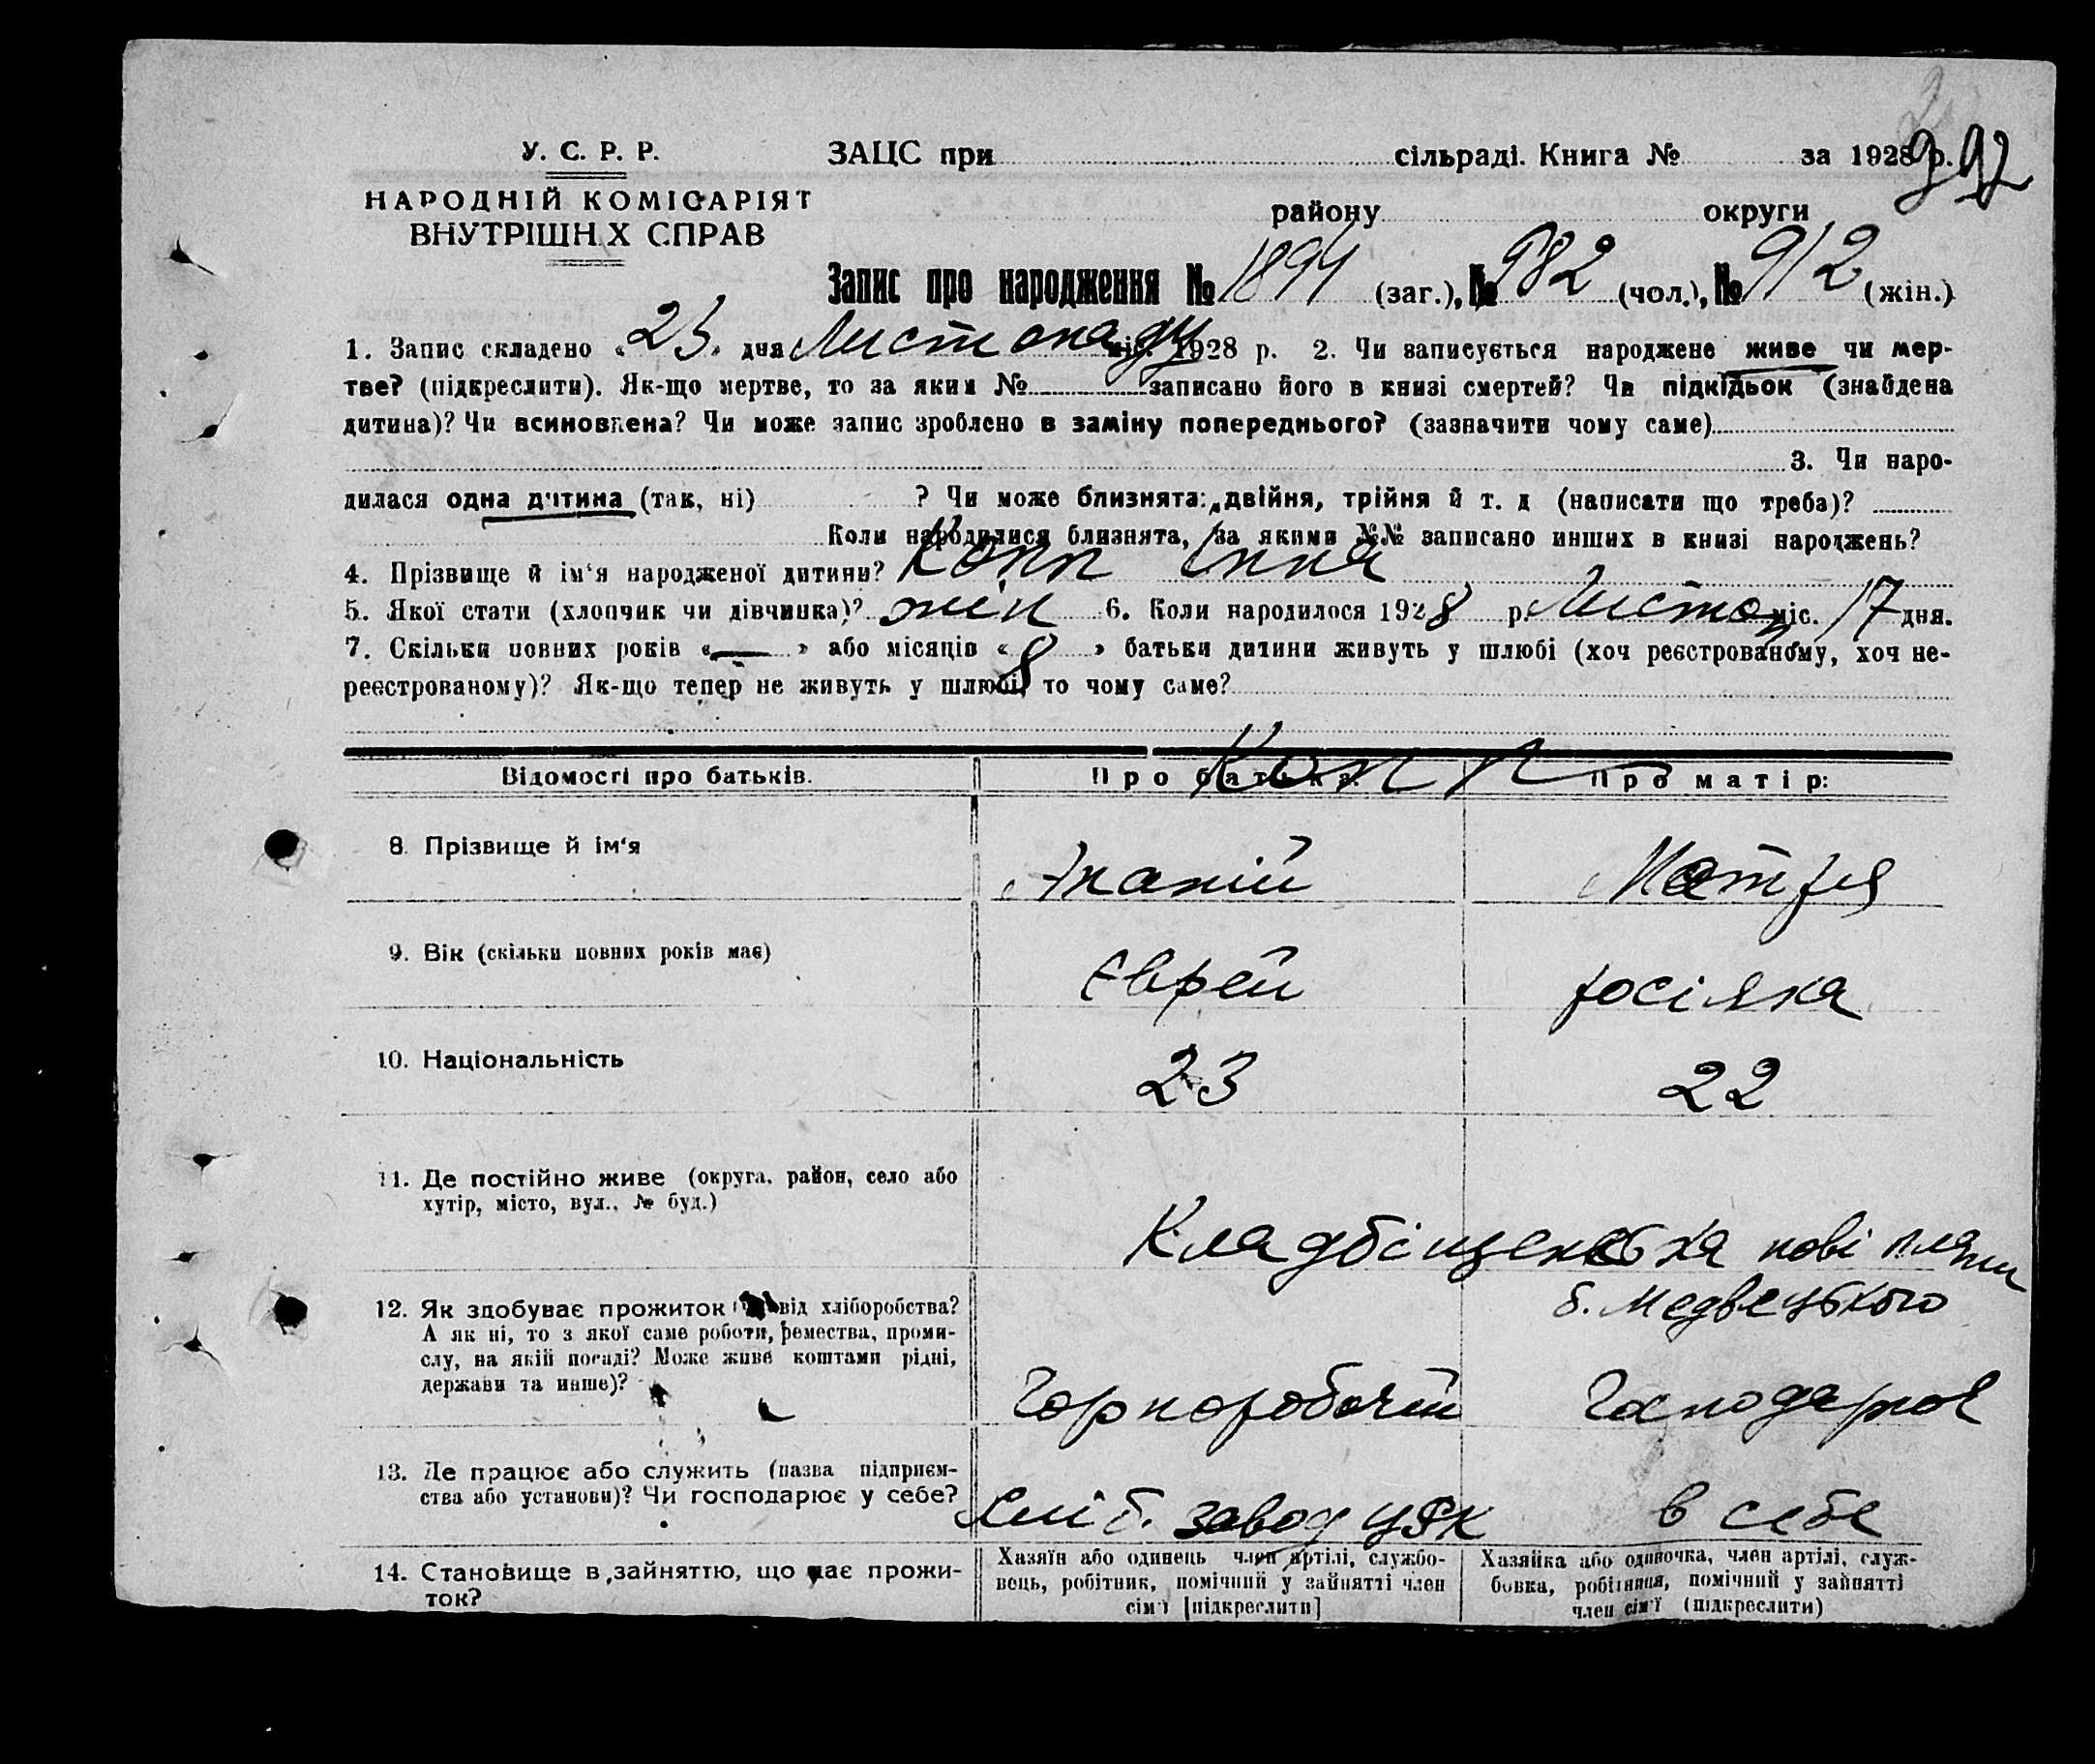 У. С. Р. Р.
НАРОДНІЙ КОМІСАРІЯТ
ВНУТРІШНІХ СПРАВ
ЗАЦС при сільраді. Книга № за 1928 р.
району округи
Запис про народження № 1894 (заг.), № 982 (чол.), № 912 (жін.)
1. Запис складено « 23 » дня Листопаду міс. 1928 р. 2. Чи записується народжене живе чи мер-
тве? (підкреслити). Як-що мертве, то за яким № записано його в книзі смертей? Чи підкідьок (знайдена
дитина)? Чи всиновлена? Чи може запис зроблено в заміну попереднього? (зазначити чому саме)
3. Чи наро-
дилася одна дитина (так, ні) ? Чи може близнята: двійня, трійня й т. д (написати що треба)?
Коли народилися близнята, за якими №№ записано инших в книзі народжень?
4. Прізвище й ім‘я народженої дитини? Копп Інна
5. Якої стати (хлопчик чи дівчинка)? жін 6. Коли народилося 1928 р. Листоп міс. 17 дня.
7. Скільки повних років « — » або місяців « 8 » батьки дитини живуть у шлюбі (хоч реєстрованому, хоч не-
реєстрованому)? Як-що тепер не живуть у шлюбі, то чому саме?
Копп
Відомості про батьків. Про батька: Про матір:
8. Прізвище й ім‘я Ананій Мотря
9. Вік (скільки повних років має) Єврей росіянка
10. Національність 23 22
11. Де постійно живе (округа, район, село або
хутір, місто, вул., № буд.)
Кладбіщенська нові пляни
б. Медвецького
12. Як здобуває прожиток від хліборобства?
А як ні, то з якої саме роботи, ремества, проми-
слу, на якій посаді? Може живе коштами рідні,
держави та инше)?
Чорноробочий Господарює
13. Де працює або служить (назва підприєм-
ства або установи)? Чи господарює у себе?
завод ЦРК в себе
14. Становище в зайняттю, що дає прожи-
ток?
Хазяїн або одинець член артілі, службо-
вець, робітник, помічний у зайнятті член
сім‘ї [підкреслити]
Хазяйка або одиночка, член артілі, служ-
бовка, робітниця, помічний у зайнятті
член сім‘ї (підкреслити)